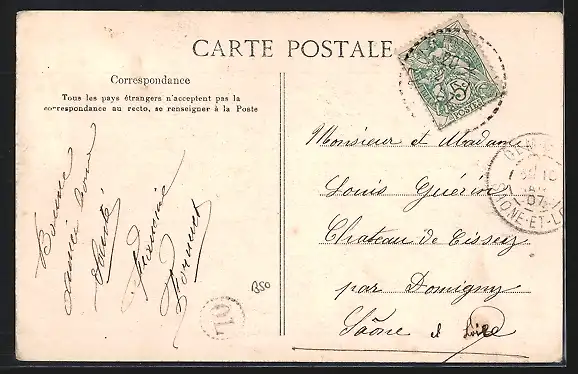 CARTE POSTALE
Correspondance
Tous les pays étrangers n'acceptent pas la
correspondance au recto, se renseigner à la Poste
Bonne
année bonne
Santé
5c
POSTES
SAONE-ET-L
07
Monsieur et Madame
Louis Guérin
Chateau de Cissey
par Domigny
Saône et Loire
BSO